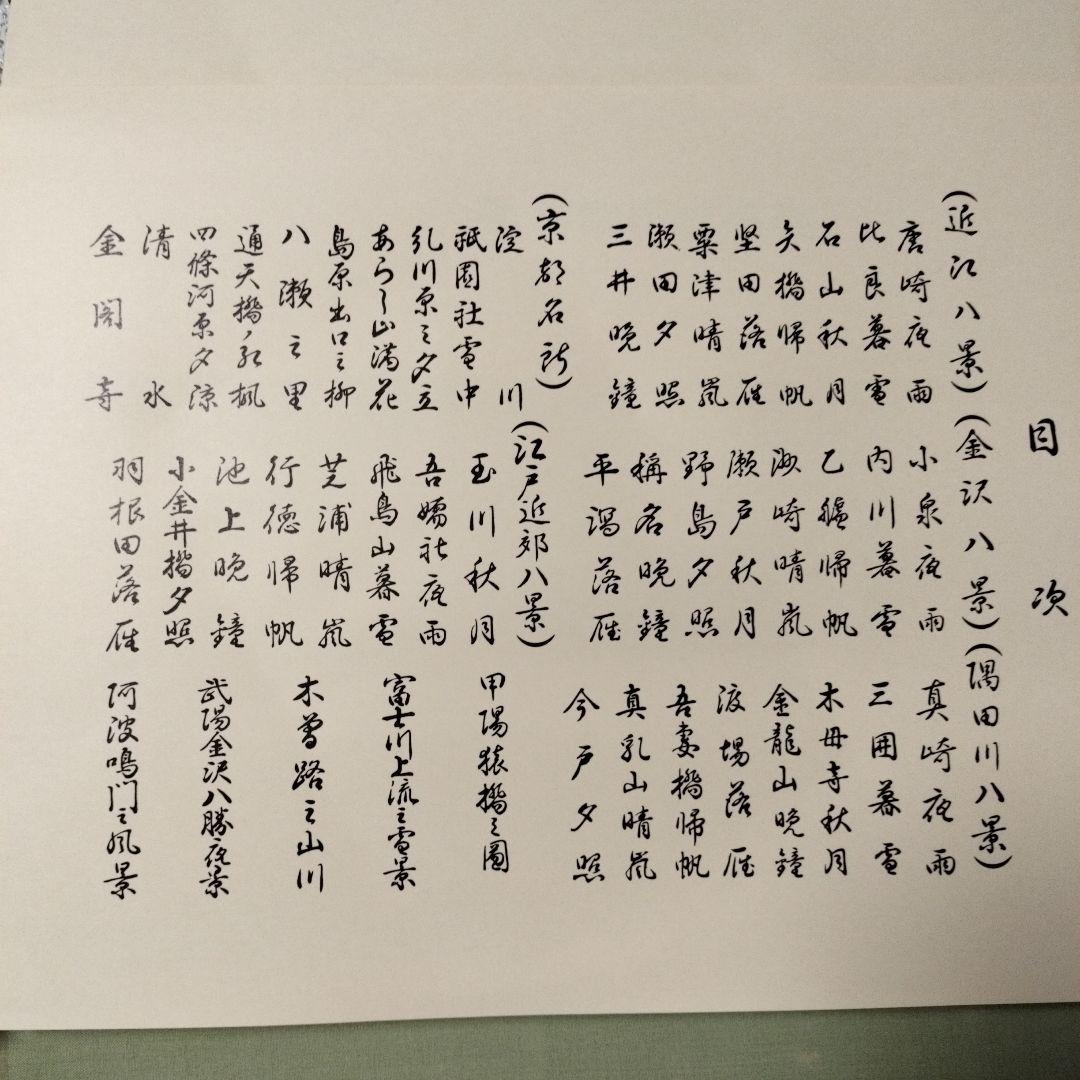 目次
(近江八景)
唐崎夜雨
比良暮雪
石山秋月
矢橋帰帆
堅田落雁
粟津晴嵐
瀬田夕照
三井晩鐘
(京都名所)
淀川
祇園社雪中
糺川原之夕立
あらし山満花
島原出口之柳
八瀬之里
通天橋ノ紅楓
四條河原夕涼
清水
金閣寺
(金沢八景)
小泉夜雨
内川暮雪
乙艫帰帆
洲崎晴嵐
瀬戸秋月
野島夕照
稱名晩鐘
平潟落雁
(江戸近郊八景)
玉川秋月
吾嬬社夜雨
飛鳥山暮雪
芝浦晴嵐
行徳帰帆
池上晩鐘
小金井橋夕照
羽根田落雁
(隅田川八景)
真崎夜雨
三囲暮雪
木母寺秋月
金龍山晩鐘
渡場落雁
吾妻橋帰帆
真乳山晴嵐
今戸夕照
甲陽猿橋之圖
富士川上流之雪景
木曽路之山川
武陽金沢八勝夜景
阿波鳴門之風景